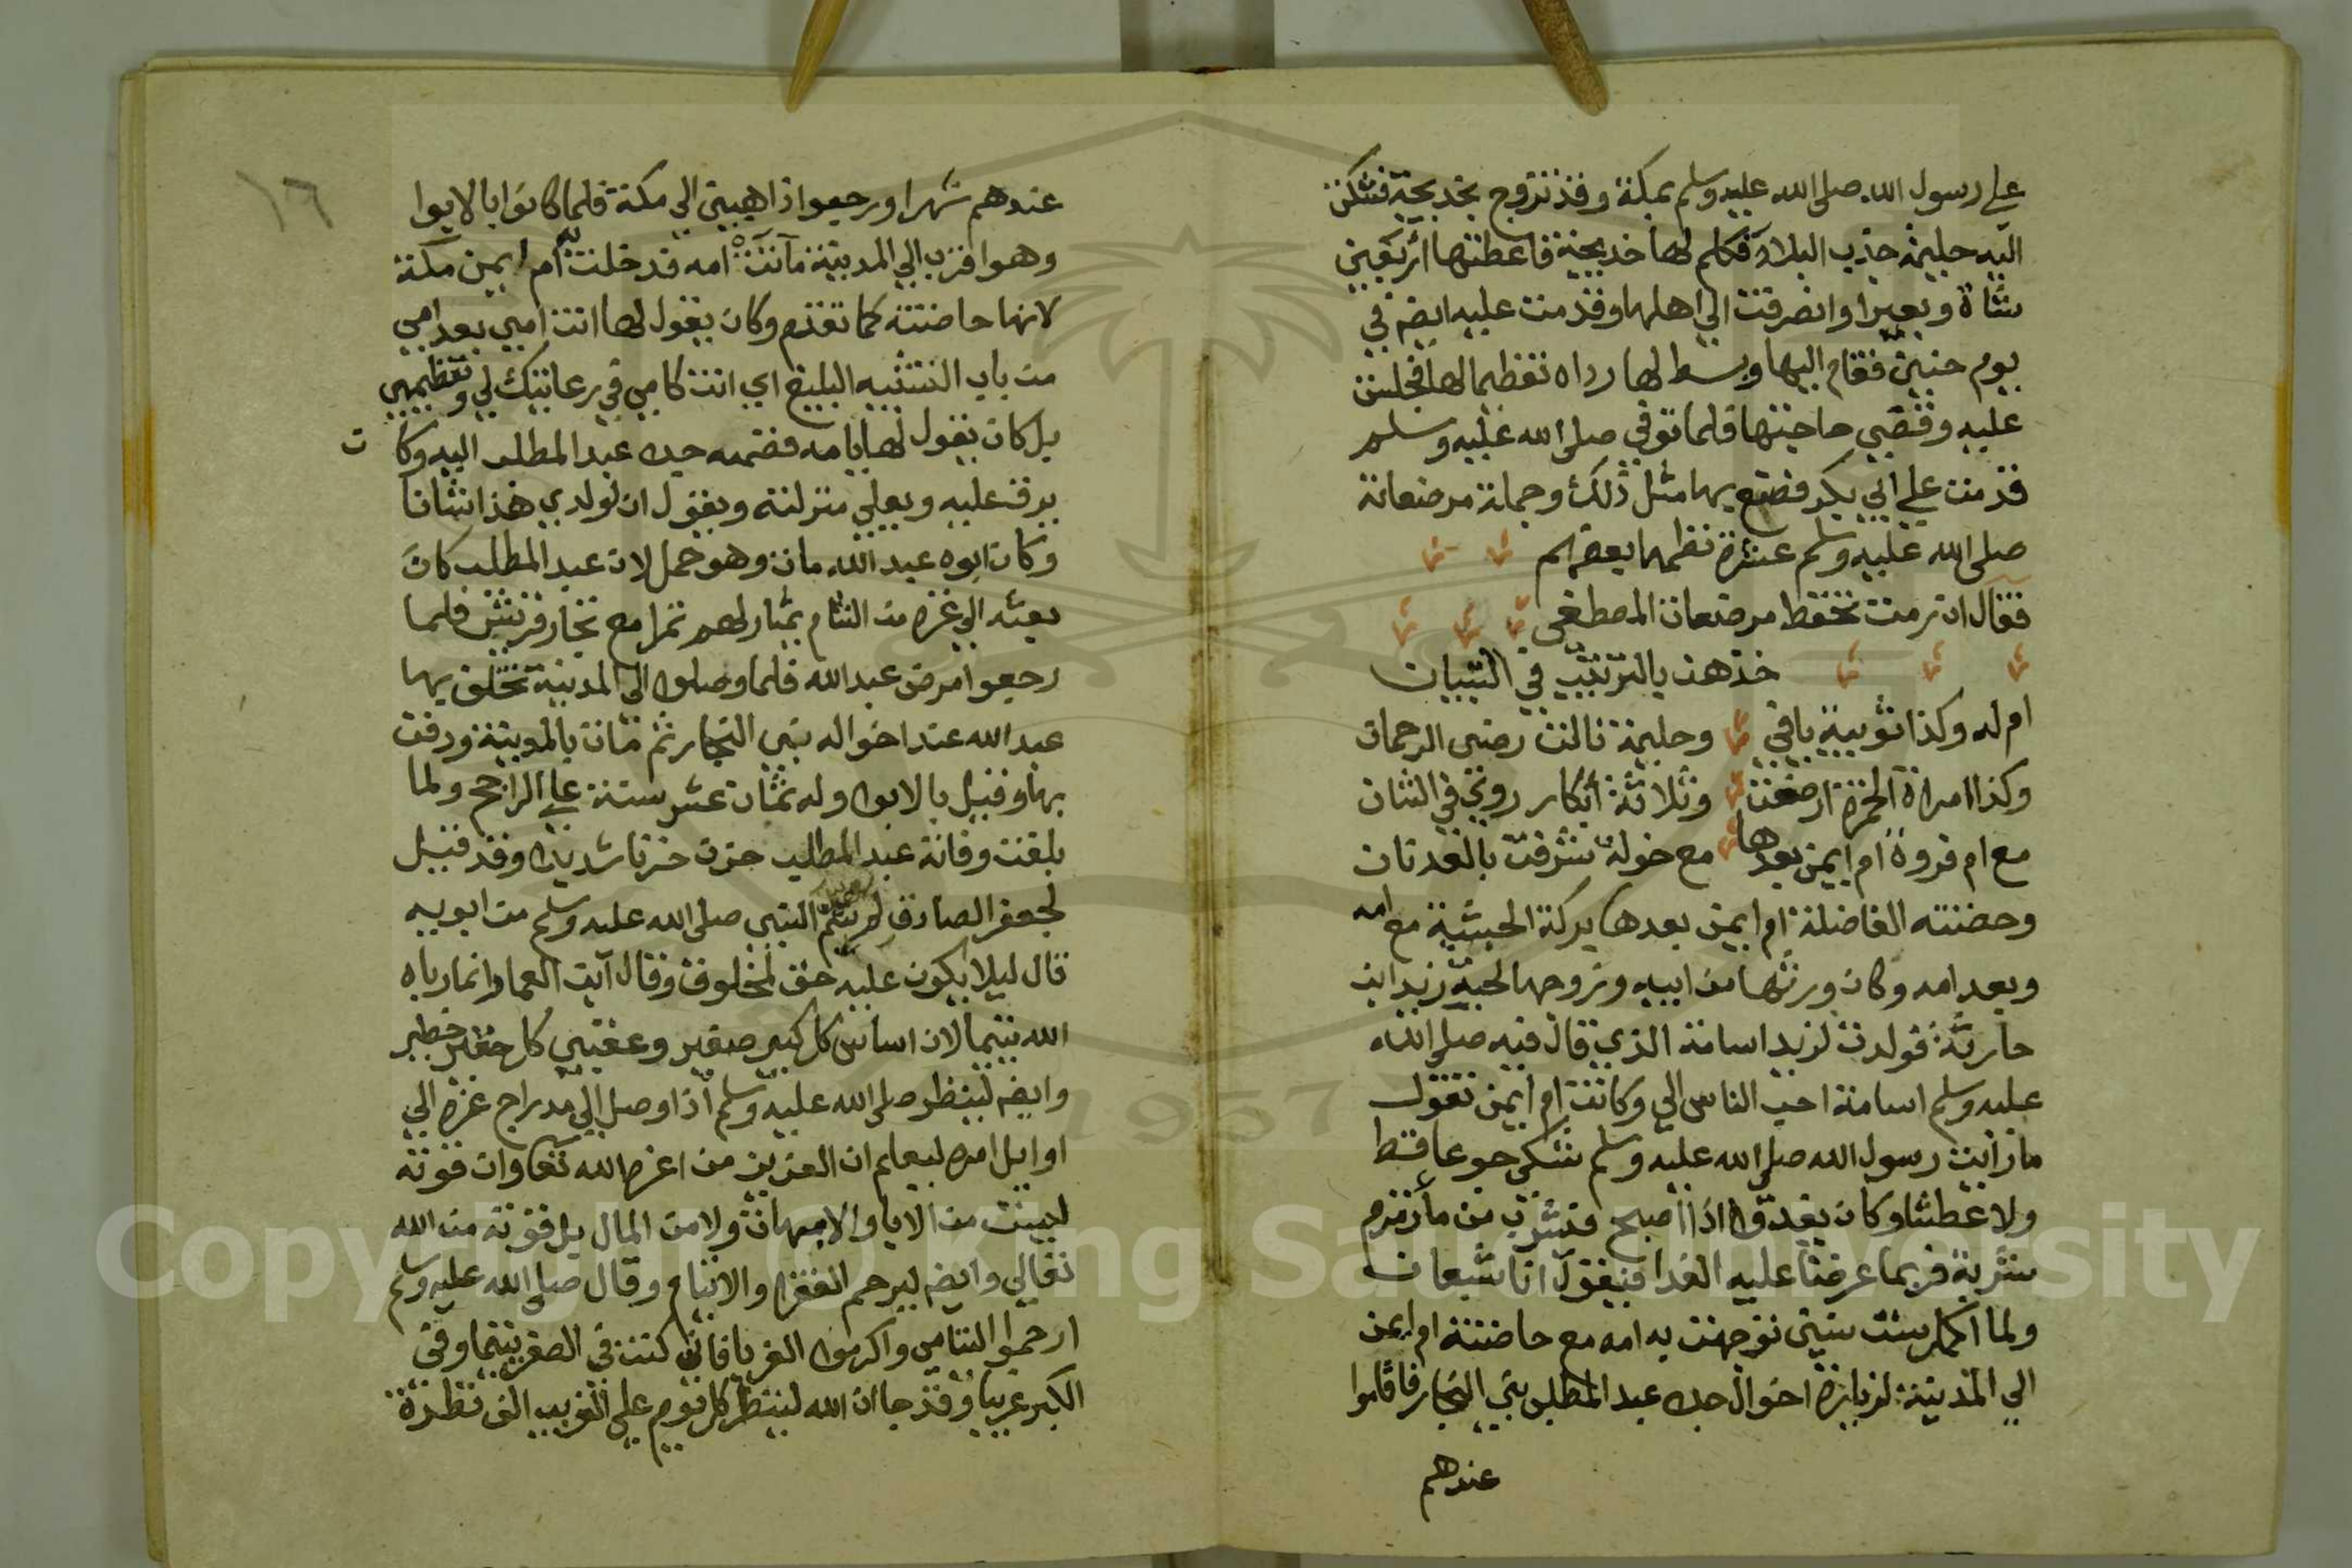 علي رسول الله صلى الله عليه وسلم بمكة وقد تزوج بخديجة فشكت
اليه حليمة جذب البلاد فكلم لها خديجة فاعطتها اربعين
شاة وبعيرا وانصرفت الي اهلها وقدمت عليه ايضه في
يوم حنين فقام اليها وبسط لها رداه تعظيما لها فجلست
عليه وقضي حاجتها فلما توفي صلى الله عليه وسلم
قدمت علي ابي بكر فصنع بها مثل ذلك وجملة مرضعاته
صلى الله عليه وسلم عشرة نظمها بعضهم
فقال ان رمت تحفظ مرضعات المصطفى
خذهن بالترتيب في التبيان
ام له وكذا ثويبة يافتي وحليمة نالت رضي الرحمان
وكذا امراة الحمزة ارضعت وثلاثة أبكار روي في الثان
مع ام فروة ام ايمن بعدها مع خولة شرفت بالعدنان
وحضنته الفاضلة ام ايمن بعدها بركة الحبشية مع امه
وبعد امه وكان ورثها من ابيه وزوجها لحبه زيد ابن
حارثة فولدت لزيد اسامة الذي قال فيه صلي الله
عليه وسلم اسامة احب الناس الي وكانت ام ايمن تقول
ما رايت رسول الله صلي الله عليه وسلم شكي جوعا قط
ولا عطشا وكان يغدوا اذا اصبح فيشرب من ما زمزم
شربة فربما عرضنا عليه الغدا فيقول انا شبعان
ولما اكمل ست سنين توجهت به امه مع حاضنته ام ايمن
الي المدينة لزيارة اخوال جده عبد المطلب بني النجار فاقاموا
عندهم
١٦
عندهم شهرا ورجعوا ذاهبين الي مكة فلما كانوا بالابوا
وهو اقرب الي المدينة ماتت امه فدخلت به أم ايمن مكة
لانها حاضنته كما تقدم وكان يقول لها انت امي بعد امي
من باب التشبيه البليغ اي انت كامي في رعايتك لي وتعظيمي
بل كان يقول لها يا امه فضمه جده عبد المطلب اليه وكان
يرق عليه ويعلي منزلته ويقول ان لولدي هذا شانا
وكان ابوه عبد الله مات وهو حمل لان عبد المطلب كان
بعثه الي غزه من الشام يمتار لهم تمرا مع تجار قريش فلما
رجعوا مرض عبد الله فلما وصلوا الي المدينة تخلف بها
عبد الله عند اخواله بني النجار ثم مات بالمدينة ودفن
بها وقيل بالابوا وله ثمان عشر سنة علي الراجح ولما
بلغت وفاته عبد المطلب حزن حزنا شديدا وقد قيل
لجعفر الصادق لم يتم النبي صلى الله عليه وسلم من ابويه
قال ليلا يكون عليه حق لمخلوق وقال آبن العماد انما رباه
الله يتيما لان اساس كل كبير صغير وعقبي كل حقير خطير
وايضه لينظر صلى الله عليه وسلم اذا وصل الي مدراج عزه الي
اوايل امره ليعلم ان العزيز من اعزه الله تعا وان قوته
ليست من الابا والامهات ولا من المال بل قوته من الله
تعالي وايضه ليرحم الفقرا والايتام وقال صلى الله عليه وسلم
ارحموا اليتامي واكرموا الغربا فاني كنت في الصغر يتيما وفي
الكبر غريبا وقد جا ان الله لينظر كل يوم علي الغريب الف نظرة